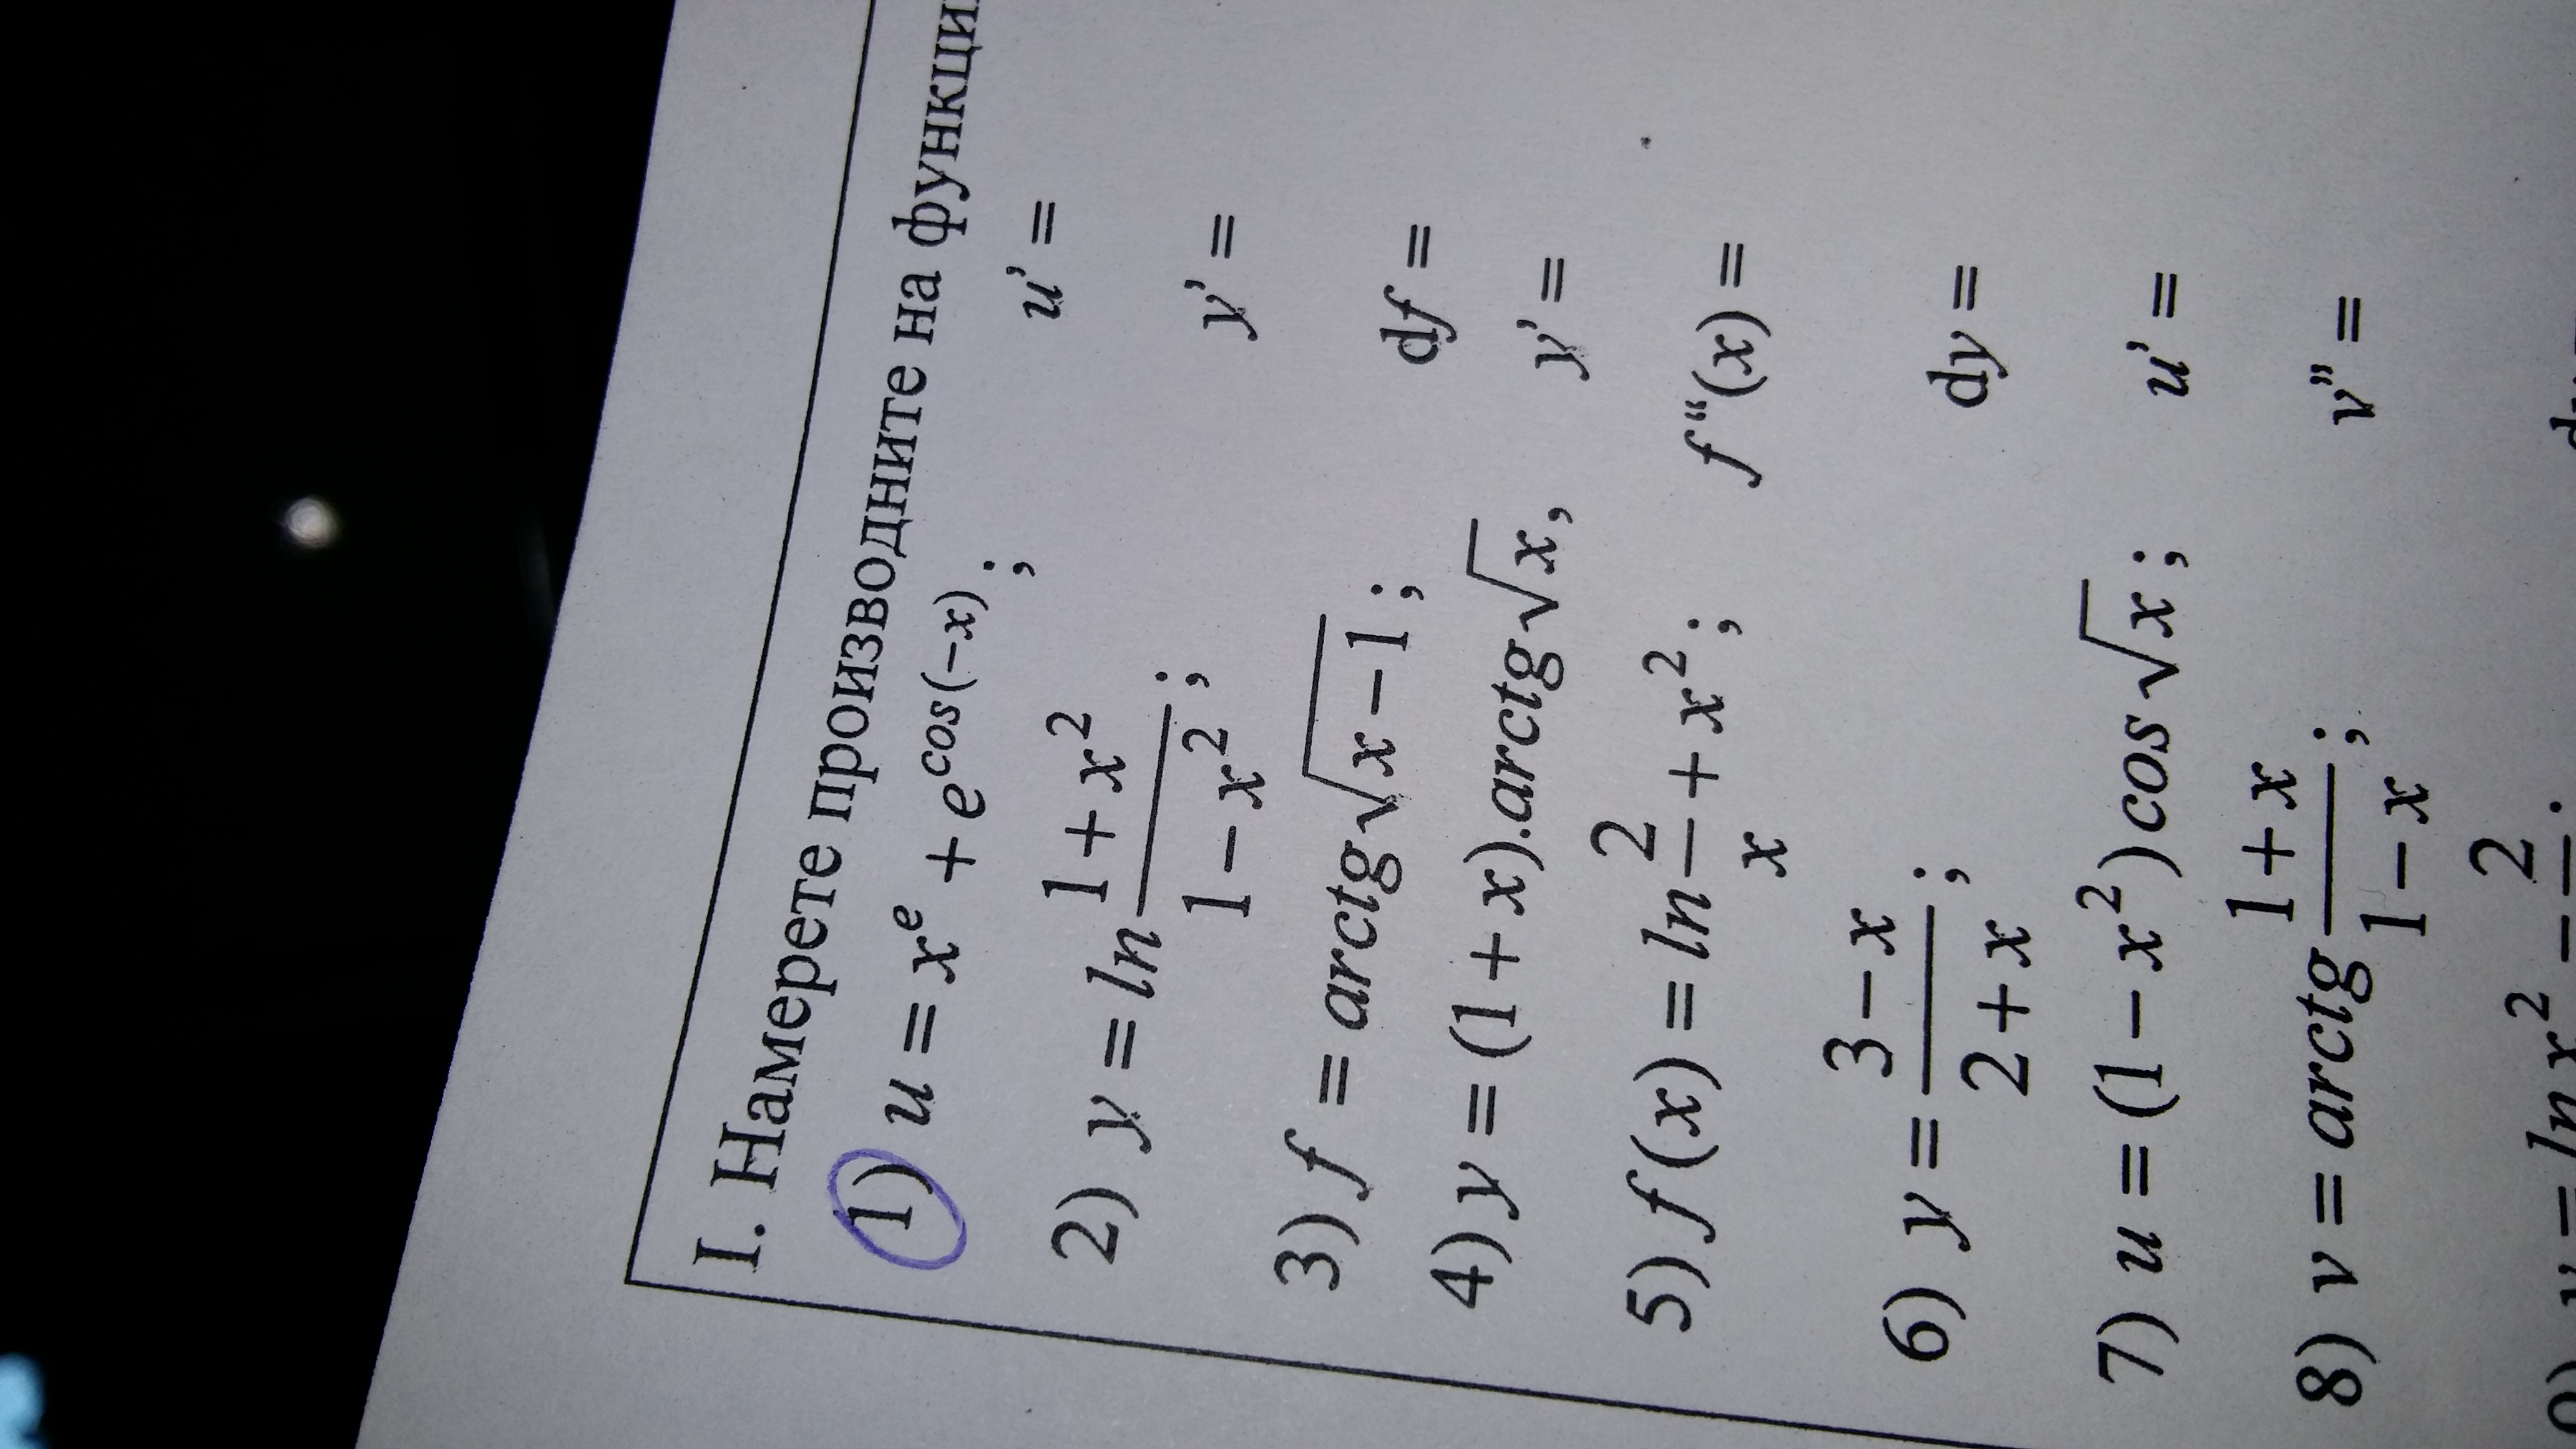 I. Намерете производните на функции
1) u = x^e + e^{cos(−x)}; u' =
2) y = ln \frac{1+x^2}{1−x^2}; y' =
3) f = arctg√(x−1); df =
4) y = (1+x).arctg√x, y' =
5) f(x) = ln \frac{2}{x} + x^2; f"(x) =
6) y = \frac{3−x}{2+x}; dy =
7) u = (1−x^2)cos√x; u' =
8) v = arctg \frac{1+x}{1−x}; v" =